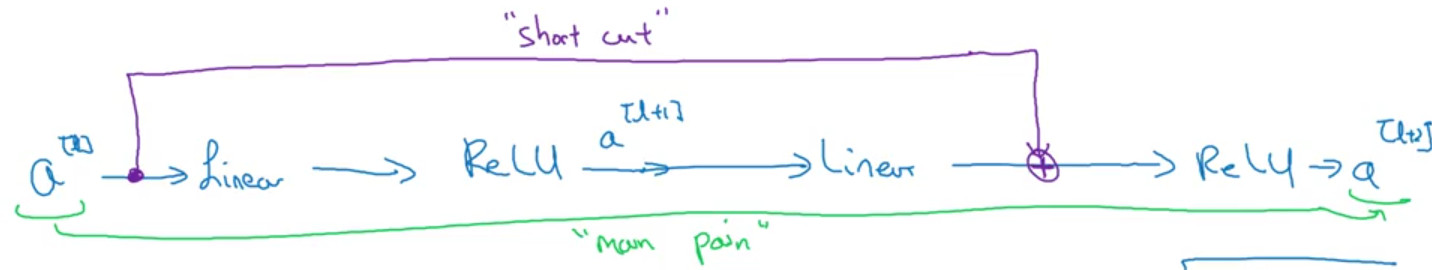 "short cut"
a^[l] → Linear → ReLU → a^[l+1] → Linear → ReLU → a^[l+2]
"main pain"